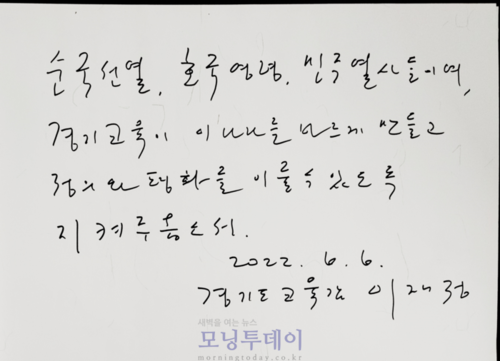 순국선열, 호국영령, 민주열사들이여,
경기교육이 이 나라를 바르게 만들고
정의와 평화를 이룰 수 있도록
지켜주옵소서.
2022. 6. 6.
경기도교육감 이재정
새벽을 여는 뉴스
모닝투데이
morningtoday.co.kr